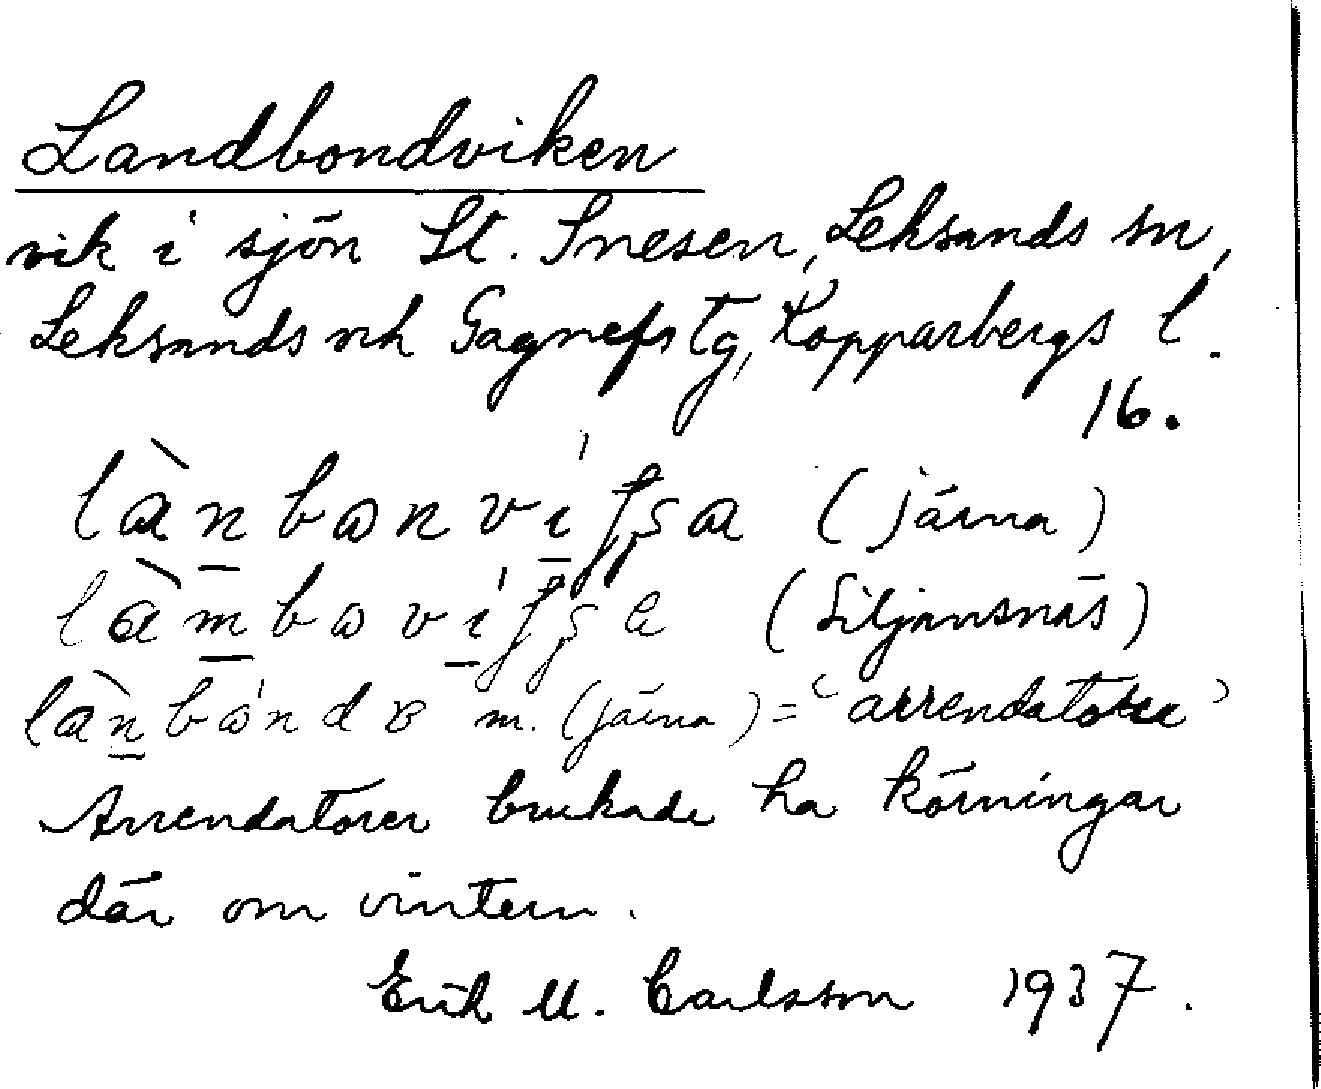 Landbondviken
vik i sjön St. Snesen, Leksands sn,
Leksands och Gagnefs tg, Kopparbergs l.
16.
(Järna)
(Siljansnäs)
m. (Järna) = 'arrendatorer'
Arrendatorer brukade ha körningar
där om vintern.
Erik M. Carlsson 1937.